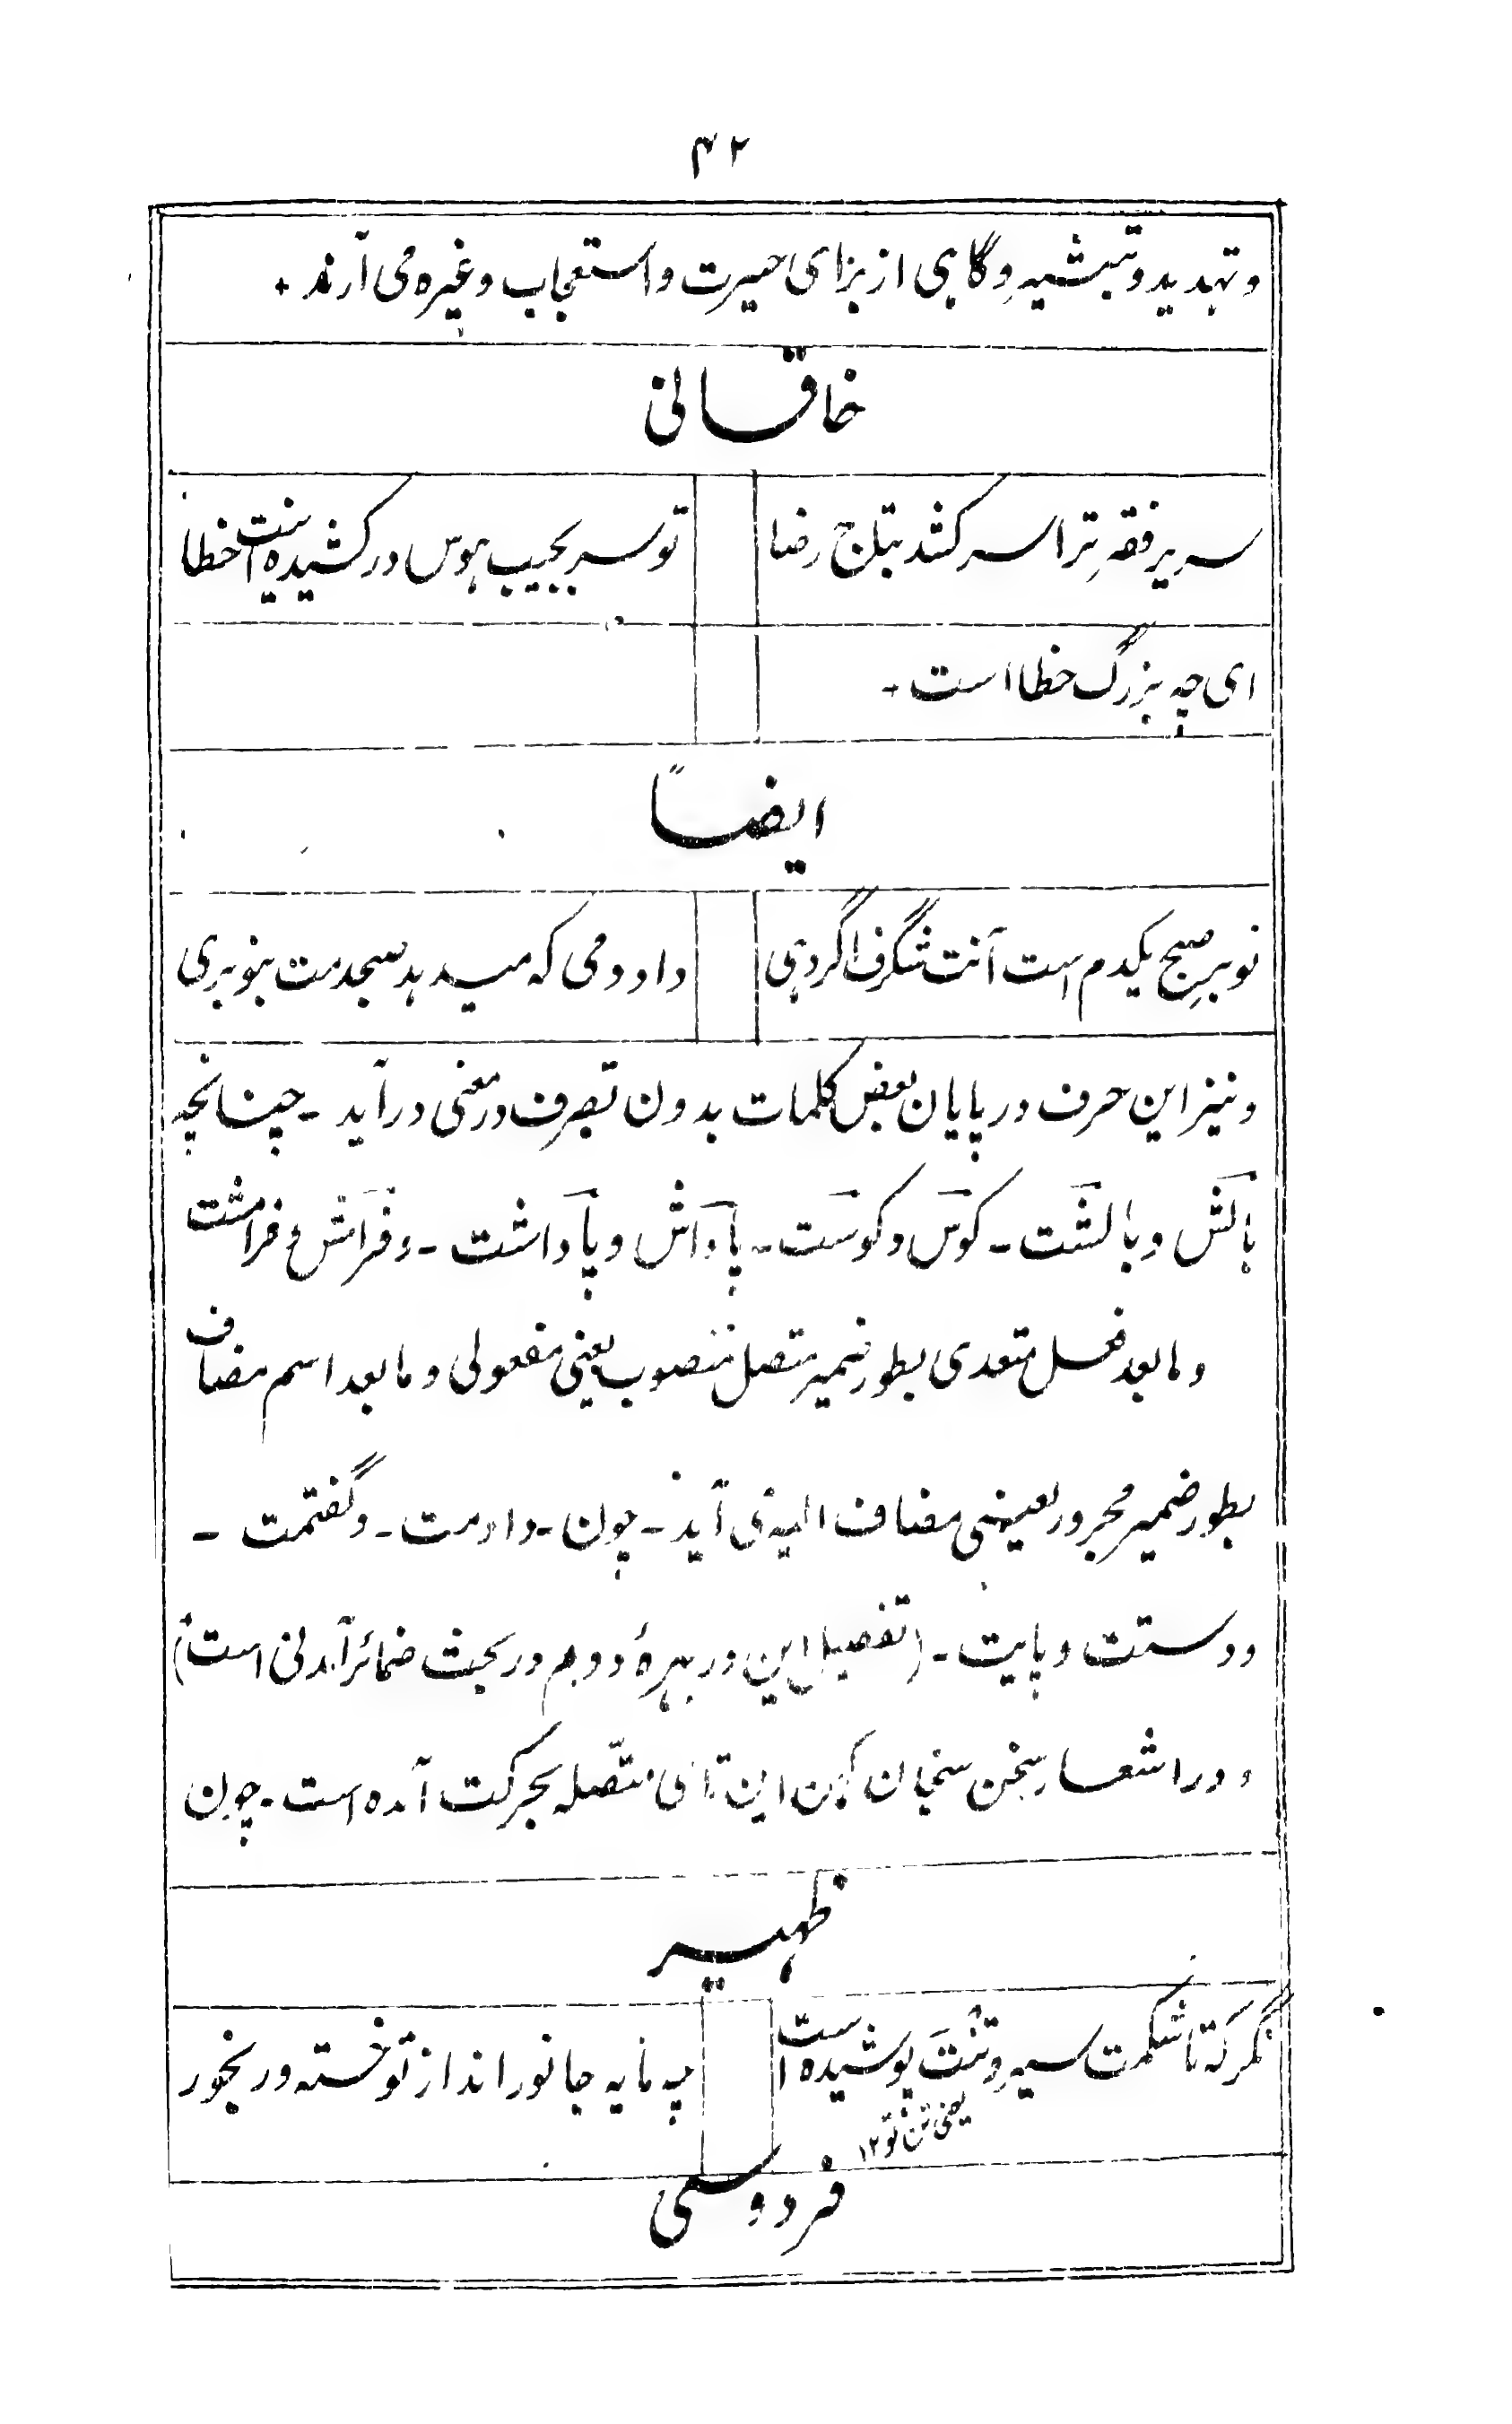 ۴۲
و تهدید و تنبیه و گاهی از برای حیرت و استعجاب و غیره می آرند ٭
خاقانی
سریر فقر ترا سر کشد بتاج رضا
تو سر بجیب هوس درکشیده اینت خطا
ای چه بزرگ خطا است -
ایضاً
نوبرِ صبح یکدم است آنت شگرف اگر دهی
داد دمی که میدهد صبحدمت بنوبری
و نیز این حرف در پایان بعض کلمات بدون تصرف در معنی درآید - چنانچه
بالَش و بالشَت - کوَس و کوسَت - پاداش و پاداشت - و فراَش و فرامشت
و ما بعد فعل متعدی بطور ضمیر متصل منصوب یعنی مفعولی و ما بعد اسم مضاف
بطور ضمیر مجرور یعنی مضاف الیه می آید - چون - دادمت - و گفتمت -
و دستت و پایت - (تفصیل این در بهرهٔ دوم در بحث ضمائر آمدنی است)
و در اشعار سخن سنجان کهن این تای متّصله بحرکت آمده است - چون
ظهیر
نگر که تا شکمت سیر و تنَت پوشیده است
چه مایه جانور اند از تو خسته و رنجور
یعنی تن تو ۱۲
فردوسی